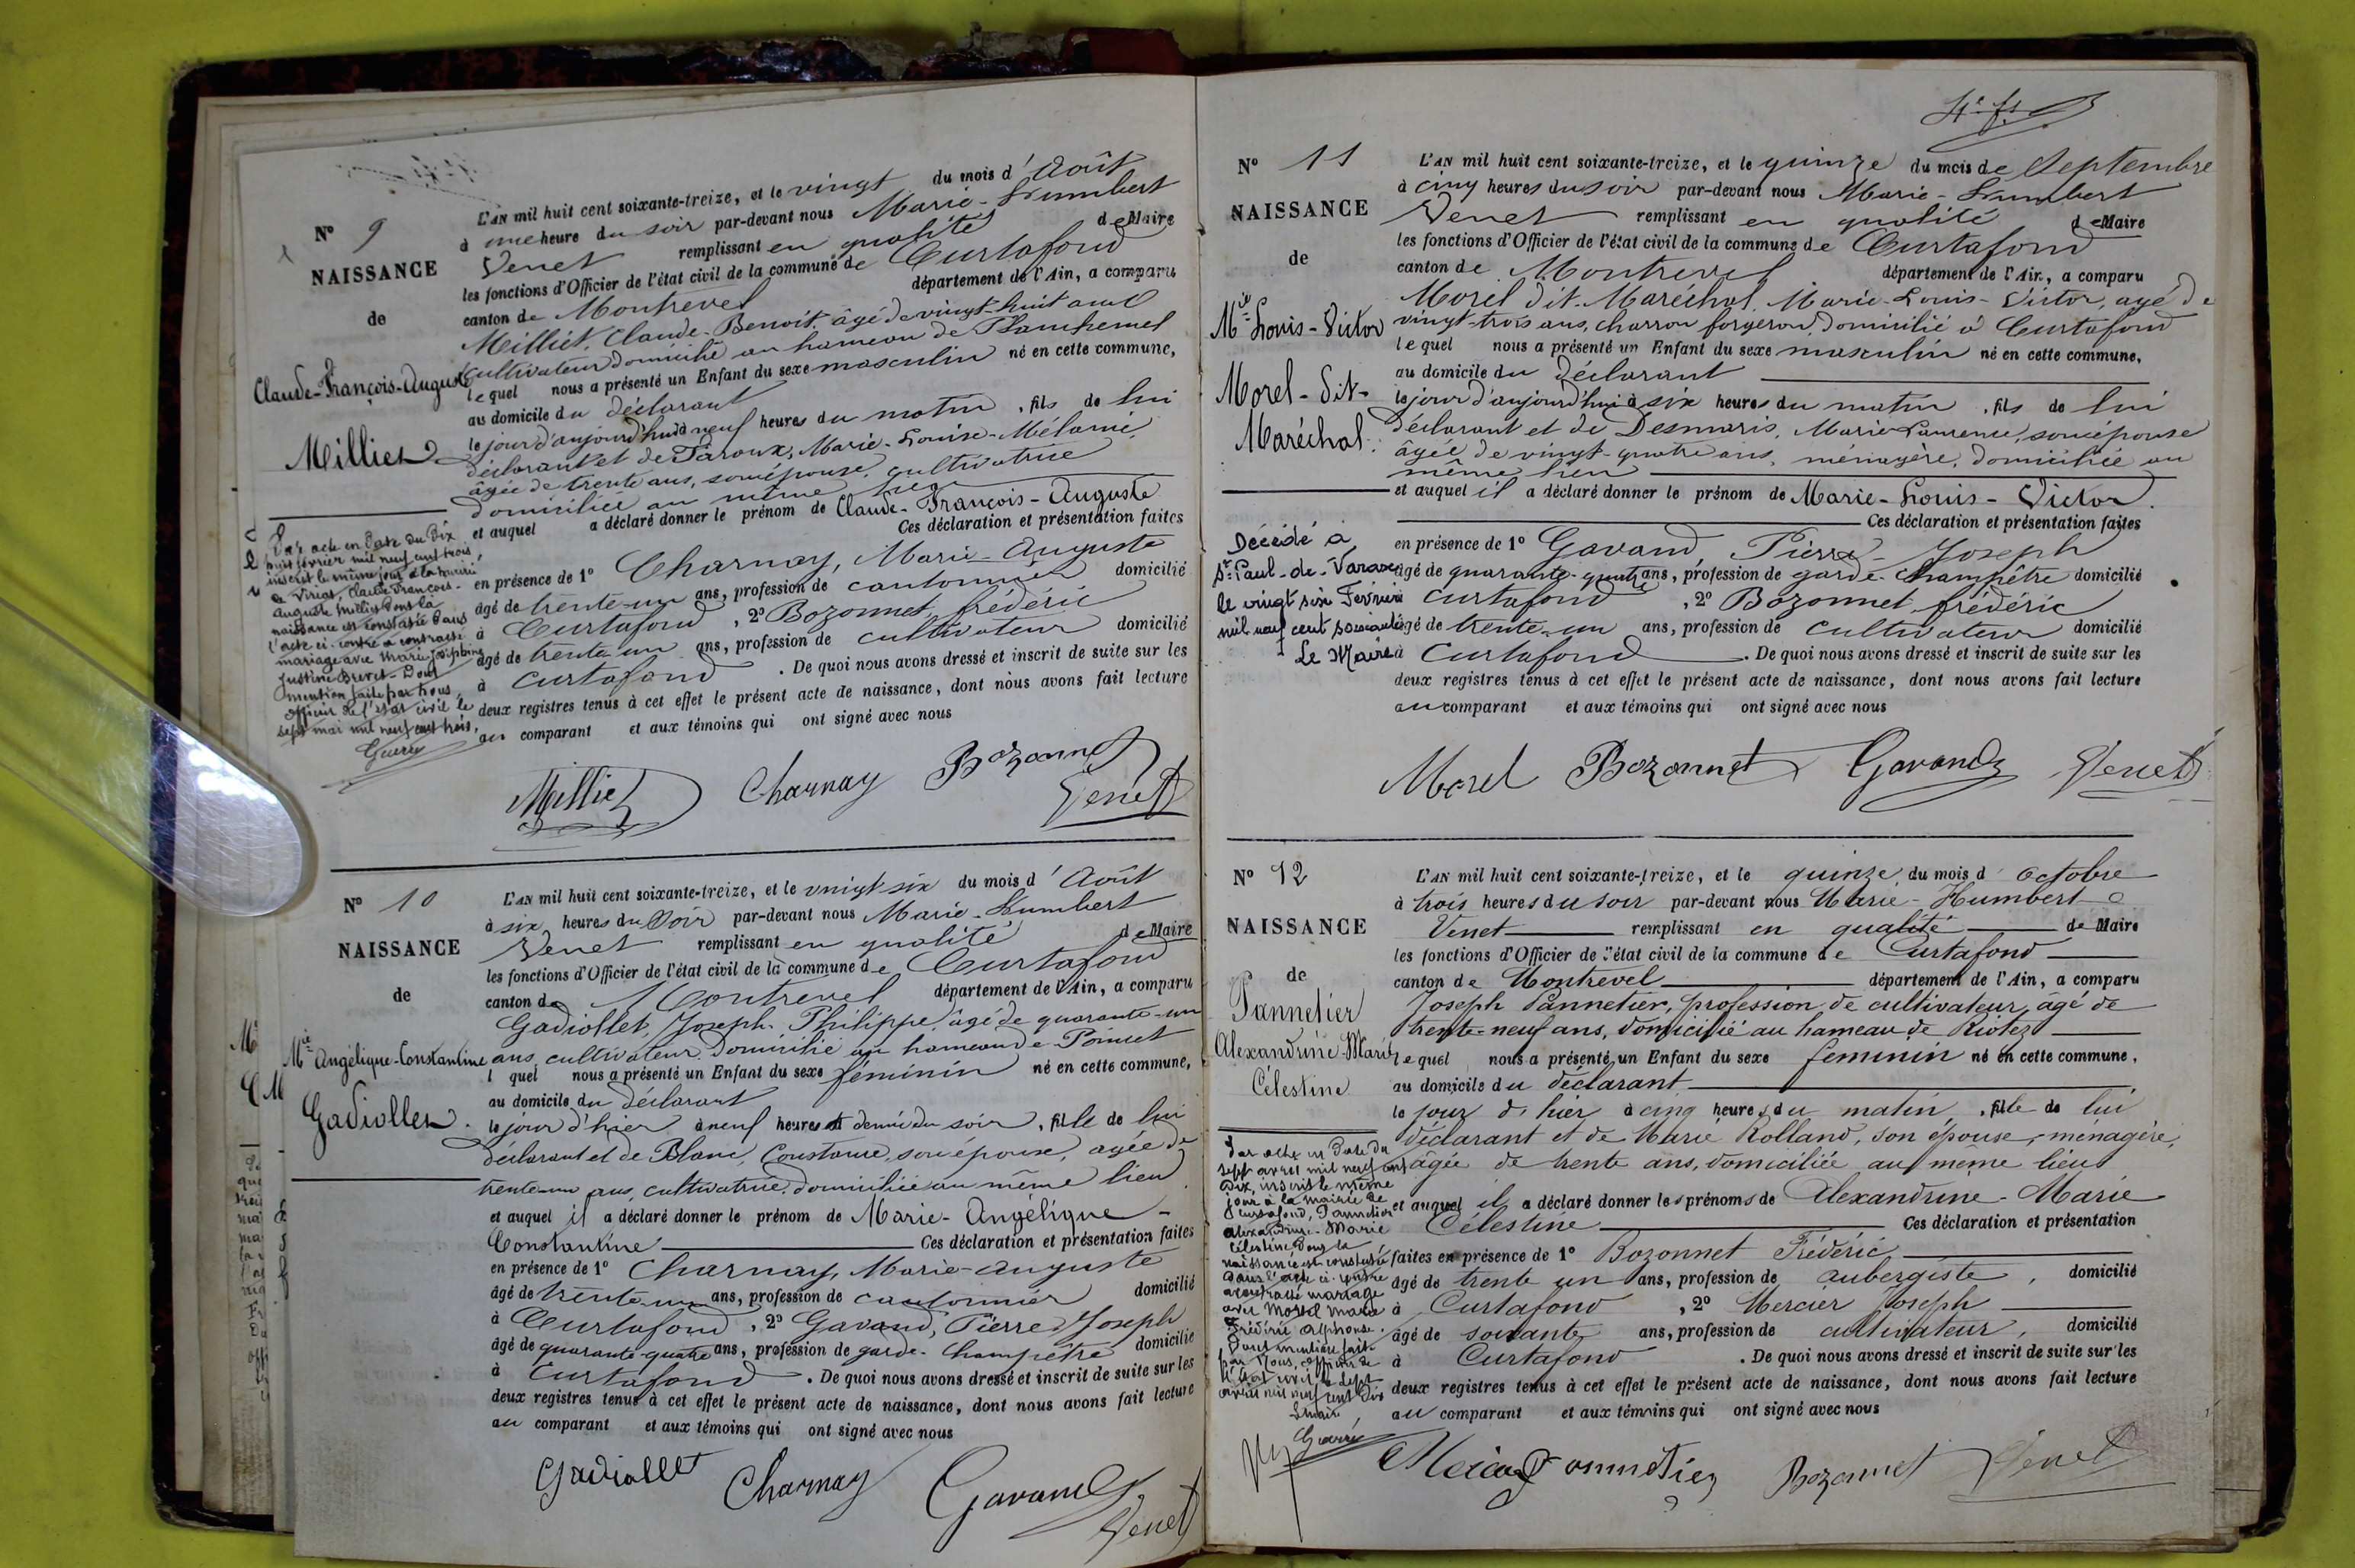 N° 9
NAISSANCE
de
Claude-François-Auguste
Milliet
L'AN mil huit cent soixante-treize, et le vingt du mois d'Août
à une heure du soir par-devant nous Marie-Humbert
Venet remplissant en qualité de Maire
les fonctions d'Officier de l'état civil de la commune de Curtafond
canton de Montrevel département de l'Ain, a comparu
Milliet, Claude-Benoit, âgé de vingt-huit ans
cultivateur domicilié au hameau de
lequel nous a présenté un Enfant du sexe masculin né en cette commune,
au domicile du déclarant
le jour d'aujourd'hui à neuf heures du matin, fils de lui
déclarant et de Paroux, Marie-Louise-Mélanie,
âgée de trente ans, son épouse, cultivatrice
domiciliée au même lieu
et auquel a déclaré donner le prénom de Claude-François-Auguste
Ces déclaration et présentation faites
en présence de 1° Charnay, Marie-Auguste
âgé de trente-un ans, profession de cantonnier domicilié
à Curtafond, 2° Bozonnet, frédéric
âgé de trente un ans, profession de cultivateur domicilié
à Curtafond. De quoi nous avons dressé et inscrit de suite sur les
deux registres tenus à cet effet le présent acte de naissance, dont nous avons fait lecture
au comparant et aux témoins qui ont signé avec nous
Par acte en date du dix
huit février mil neuf cent trois,
inscrit le même jour à la mairie
de Viriat, Claude François-
Auguste Milliet dont la
naissance est constatée dans
l'acte ci-contre a contracté
mariage avec Marie Joséphine
Justine Brevet - Dont
mention faite par nous
officier de l'état civil le
sept mai mil neuf cent trois,
Milliet Charnay Bozonnet
Venet
N° 10
NAISSANCE
de
Mie Angélique-Constantine
Gadiollet.
L'AN mil huit cent soixante-treize, et le vingt six du mois d'Août
à six heures du soir par-devant nous Marie-Humbert
Venet remplissant en qualité de Maire
les fonctions d'Officier de l'état civil de la commune de Curtafond
canton de Montrevel département de l'Ain, a comparu
Gadiollet, Joseph-Philippe, âgé de quarante-un
ans, cultivateur domicilié au hameau de
l quel nous a présenté un Enfant du sexe féminin né en cette commune,
au domicile du déclarant
le jour d'hier à neuf heures et demie du soir, fille de lui
déclarant et de Blanc, Constance, son épouse, agée de
trente-un ans, cultivatrice, domiciliée au même lieu
et auquel il a déclaré donner le prénom de Marie-Angélique-
Constantine Ces déclaration et présentation faites
en présence de 1° Charnay, Marie-Auguste
âgé de trente-un ans, profession de cantonnier domicilié
à Curtafond, 2° Gavand, Pierre Joseph
âgé de quarante-quatre ans, profession de garde-Champêtre domicilié
à Curtafond. De quoi nous avons dressé et inscrit de suite sur les
deux registres tenus à cet effet le présent acte de naissance, dont nous avons fait lecture
au comparant et aux témoins qui ont signé avec nous
Gadiollet Charnay Gavand
Venet
N° 11
NAISSANCE
de
Mie Louis-Victor
Morel-Dit-
Maréchal.
L'AN mil huit cent soixante-treize, et le quinze du mois de Septembre
à cinq heures du soir par-devant nous Marie-Humbert
Venet remplissant en qualité de Maire
les fonctions d'Officier de l'état civil de la commune de Curtafond
canton de Montrevel département de l'Ain, a comparu
Morel dit Maréchal, Marie-Louis-Victor, agé de
vingt-trois ans, charron forgeron, domicilié à Curtafond
lequel nous a présenté un Enfant du sexe masculin né en cette commune,
au domicile du déclarant
le jour d'aujourd'hui à six heures du matin, fils de lui
déclarant et de Desmaris, Marie Laurence, son épouse
âgée de vingt-quatre ans, ménagère, domiciliée au
même lieu
et auquel il a déclaré donner le prénom de Marie-Louis-Victor.
Ces déclaration et présentation faites
en présence de 1° Gavand, Pierre-Joseph
âgé de quarante-quatre ans, profession de garde-Champêtre domicilié
Curtafond, 2° Bozonnet, frédéric
âgé de trente-un ans, profession de cultivateur domicilié
à Curtafond. De quoi nous avons dressé et inscrit de suite sur les
deux registres tenus à cet effet le présent acte de naissance, dont nous avons fait lecture
au comparant et aux témoins qui ont signé avec nous
Décédé à
St-Paul-de-Varax
le vingt six Février
mil neuf cent soixante
Le Maire
Morel Bozonnet Gavand Venet
N° 12
NAISSANCE
de
Pannetier
Alexandrine-Marie
Célestine
L'AN mil huit cent soixante-treize, et le quinze du mois d'octobre
à trois heures du soir par-devant nous Marie-Humbert
Venet remplissant en qualité de Maire
les fonctions d'Officier de l'état civil de la commune de Curtafond
canton de Montrevel département de l'Ain, a comparu
Joseph Pannetier, profession de cultivateur, âgé de
trente-neuf ans, domicilié au hameau de Riotez
lequel nous a présenté un Enfant du sexe feminin né en cette commune,
au domicile du déclarant
le jour d'hier à cinq heures du matin, fille de lui
déclarant et de Marie Rolland, son épouse, ménagère,
âgée de trente ans, domiciliée au même lieu
et auquel il a déclaré donner les prénoms de Alexandrine-Marie
Célestine Ces déclaration et présentation
faites en présence de 1° Bozonnet Frédéric
âgé de trente un ans, profession de aubergiste, domicilié
à Curtafond, 2° Mercier Joseph
âgé de soixante ans, profession de cultivateur, domicilié
à Curtafond. De quoi nous avons dressé et inscrit de suite sur les
deux registres tenus à cet effet le présent acte de naissance, dont nous avons fait lecture
au comparant et aux témoins qui ont signé avec nous
Par acte en date du
sept avril mil neuf cent
dix, inscrit le même
jour à la mairie de
Curtafond, Pannetier
Alexandrine-Marie
Célestine dont la
naissance est constatée
dans l'acte ci-contre
a contracté mariage
avec Morel Marie
Frédéric Alphonse.
Dont mention faite
par Nous, officier de
l'état civil le sept
avril mil neuf cent dix
Mercier Pannetier Bozonnet Venet